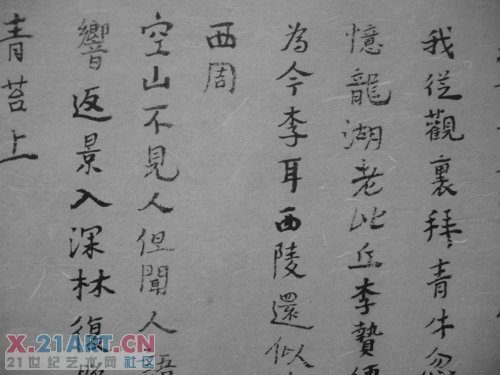 我從觀裏拜青牛忽
憶龍湖老此丘李贄便
為今李耳西陵還似
西周
空山不見人但聞人語
響返景入深林復照
青苔上
X.21ART.CN
21世纪艺术网 社区